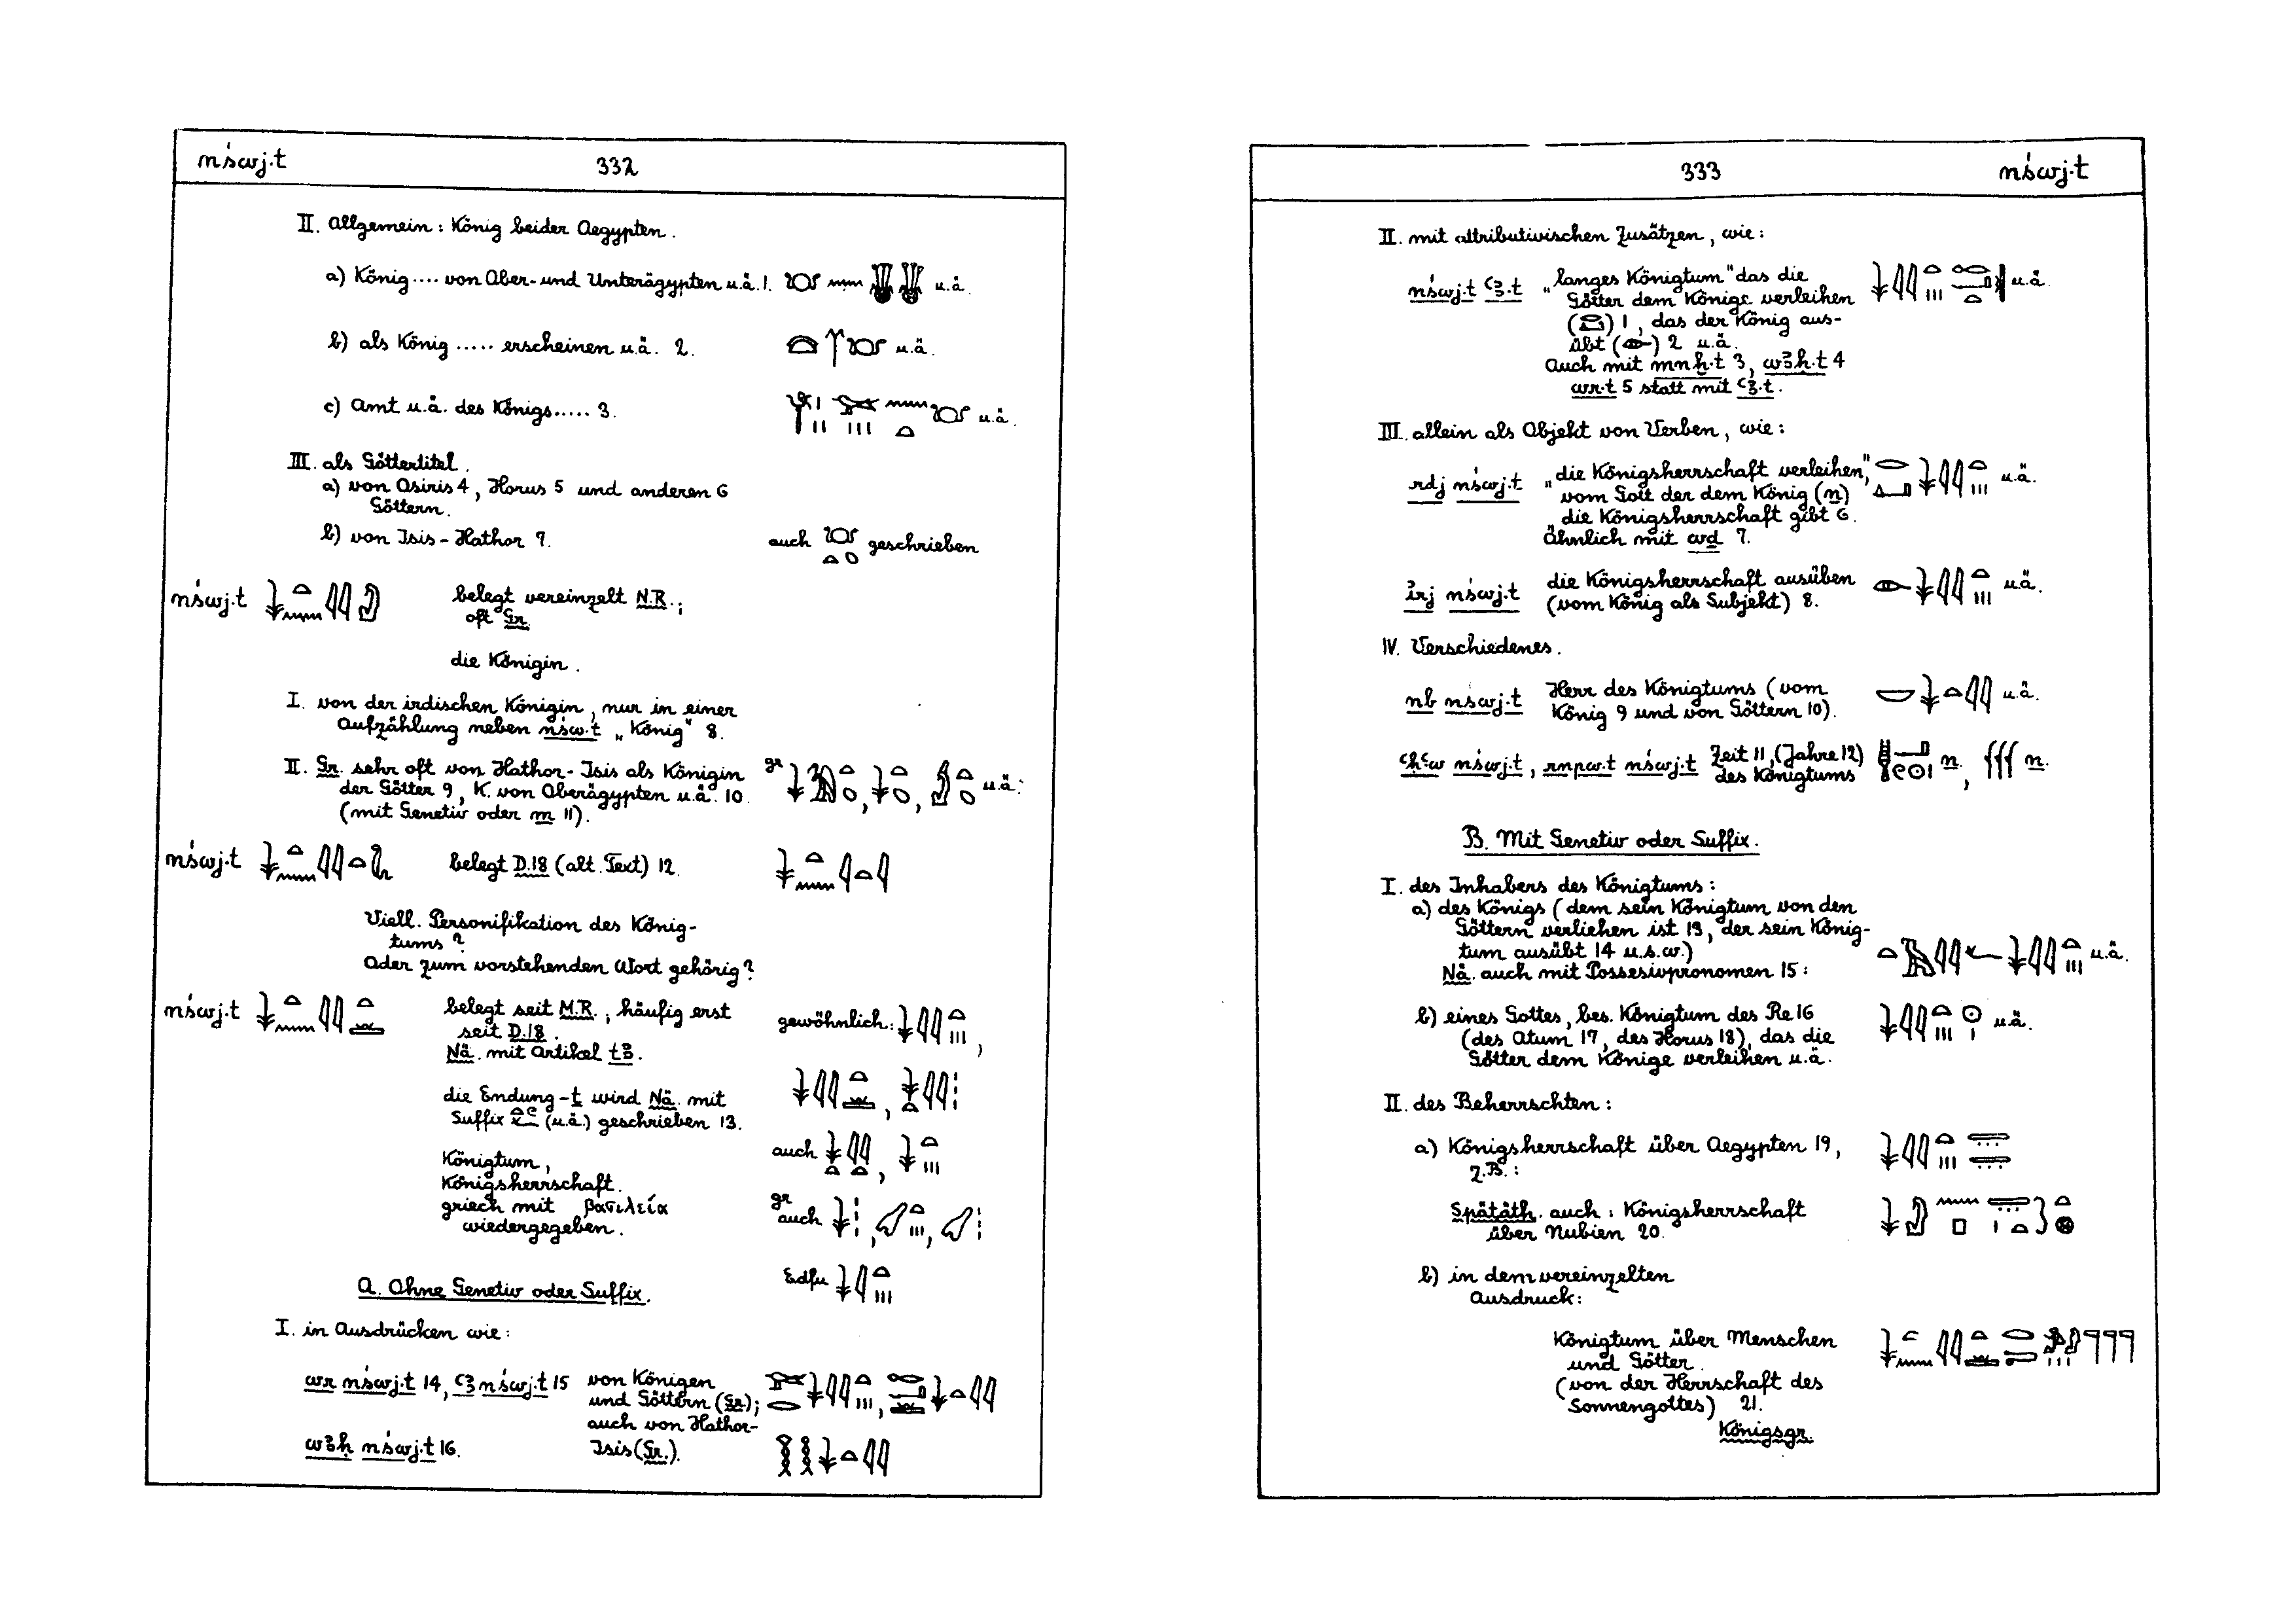 nśwj.t 332
II. Allgemein: König beider Aegypten.
a) König.... von Ober- und Unterägypten u.ä. 1. u.ä.
b) als König ..... erscheinen u.ä. 2. u.ä.
c) Amt u.ä. des Königs..... 3. u.ä.
III. als Göttertitel.
a) von Osiris 4, Horus 5 und anderen 6
Göttern.
b) von Isis-Hathor 7. auch geschrieben
nśwj.t belegt vereinzelt N.R.;
oft Gr.
die Königin.
I. von der irdischen Königin, nur in einer
Aufzählung neben nśw.t „König" 8.
II. Gr. sehr oft von Hathor-Isis als Königin gr
der Götter 9, K. von Oberägypten u.ä. 10. u.ä.
(mit Genetiv oder m 11).
nśwj.t belegt D.18 (alt. Text) 12.
Viell. Personifikation des König-
tums?
Oder zum vorstehenden Wort gehörig?
nśwj.t belegt seit M.R.; häufig erst gewöhnlich:
seit D.18.
Nä. mit Artikel tꜣ.
die Endung -t wird Nä. mit
Suffix (u.ä.) geschrieben 13.
auch
Königtum,
Königsherrschaft.
griech mit βασιλεία gr auch
wiedergegeben.
Edfu
A. Ohne Genetiv oder Suffix.
I. in Ausdrücken wie:
wr nśwj.t 14, ꜥꜣ nśwj.t 15 von Königen
und Göttern (Gr.);
auch von Hathor-
wꜣḥ nśwj.t 16. Isis (Gr.).
333 nśwj.t
II. mit attributivischen Zusätzen, wie:
nśwj.t ꜥꜣ.t „langes Königtum" das die u.ä.
Götter dem Könige verleihen
( ) 1, das der König aus-
übt ( ) 2 u.ä.
Auch mit mnḫ.t 3, wꜣḥ.t 4
wr.t 5 statt mit ꜥꜣ.t.
III. allein als Objekt von Verben, wie:
rdj nśwj.t „die Königsherrschaft verleihen", u.ä.
vom Gott der dem König (n)
die Königsherrschaft gibt 6.
Ähnlich mit wḏ 7.
irj nśwj.t die Königsherrschaft ausüben u.ä.
(vom König als Subjekt) 8.
IV. Verschiedenes.
nb nśwj.t Herr des Königtums (vom u.ä.
König 9 und von Göttern 10).
ꜥḥꜥw nśwj.t, rnpw.t nśwj.t Zeit 11, (Jahre 12) n , n.
des Königtums
B. Mit Genetiv oder Suffix.
I. des Inhabers des Königtums:
a) des Königs (dem sein Königtum von den
Göttern verliehen ist 13, der sein König-
tum ausübt 14 u.s.w.) u.ä.
Nä. auch mit Possesivpronomen 15:
b) eines Gottes, bes. Königtum des Re 16 u.ä.
(des Atum 17, des Horus 18), das die
Götter dem Könige verleihen u.ä.
II. des Beherrschten:
a) Königsherrschaft über Aegypten 19,
z.B.:
Spätäth. auch: Königsherrschaft
über Nubien 20.
b) in dem vereinzelten
Ausdruck:
Königtum über Menschen
und Götter.
(von der Herrschaft des
Sonnengottes) 21.
Königsgr.